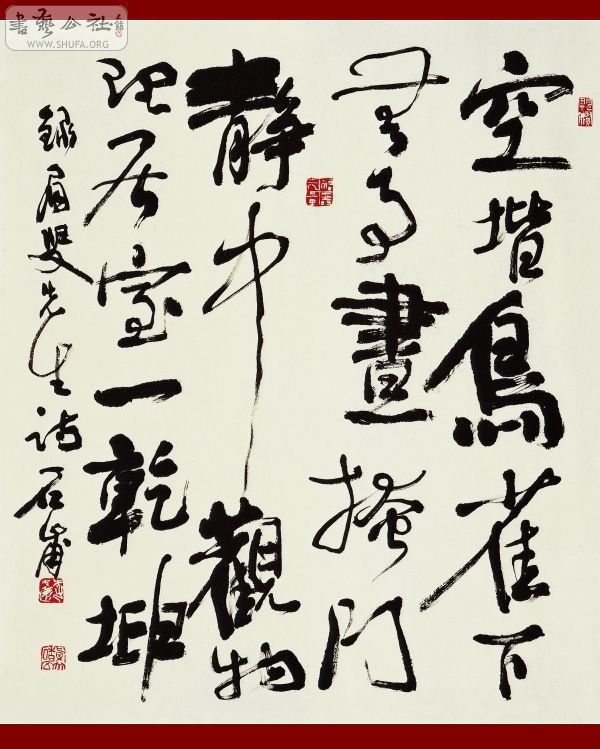 書藝公社
WWW.SHUFA.ORG
空堦鳥雀下
無事晝掩門
静中觀物
理居室一乾坤
錄眉叟先生詩石甫